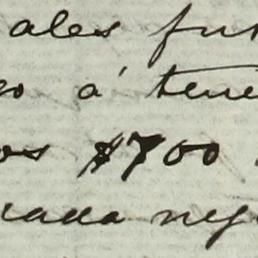 ales fut
o á tene
os $700
cada neg